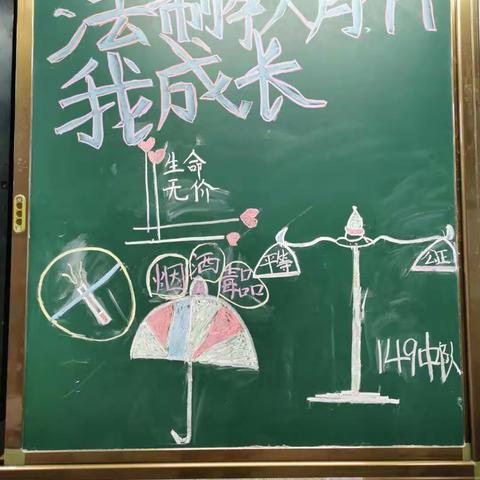 法制教育伴
我成长
生命
无价
烟 酒 毒品
平等
公正
149中队